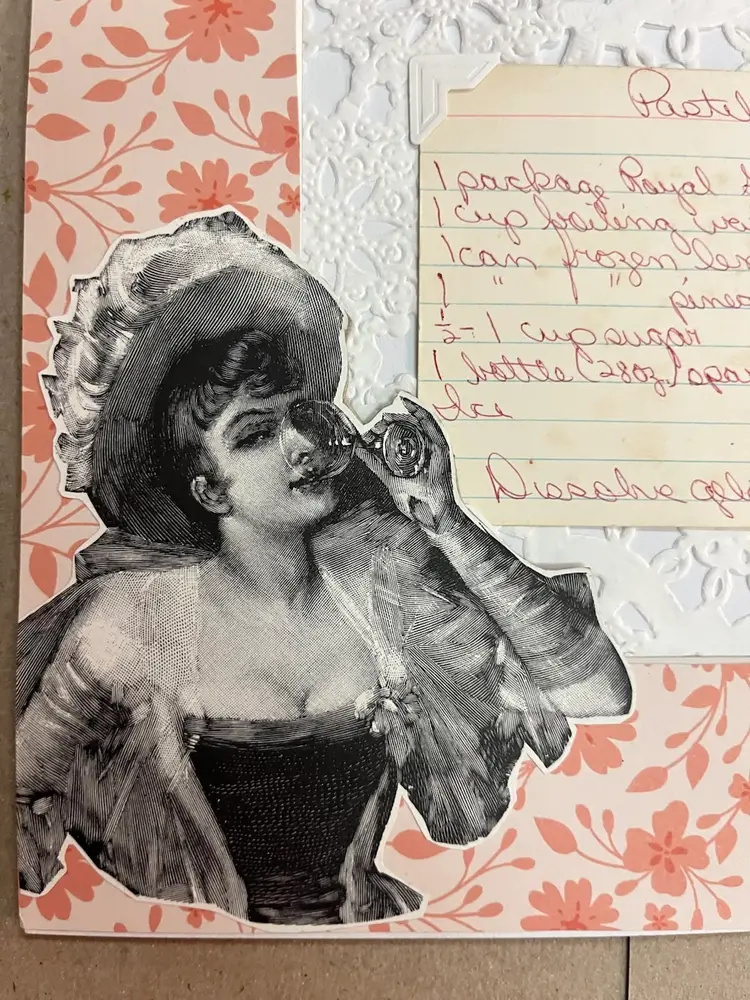 Pastel
1 package Royal
1 cup boiling wa
1 can frozen lem
1 " " pinea
½ - 1 cup sugar
1 bottle (28oz.) spar
Ice
Dissolve gel